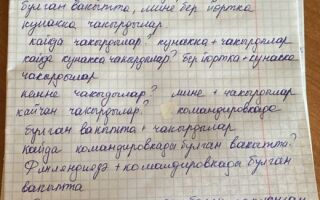 булган вакытта, мине бер йортка
кунакка чакырдылар
кайда чакырдылар? кунакка + чакырдылар
кайда кунакка чакырдылар? бер йортка + кунакка
чакырдылар
кемне чакырдылар? мине + чакырдылар
кайчан чакырдылар? командировкада
булган вакытта + чакырдылар
кайда командировкада булган вакытта?
Финляндиядә + командировкада булган
вакытта